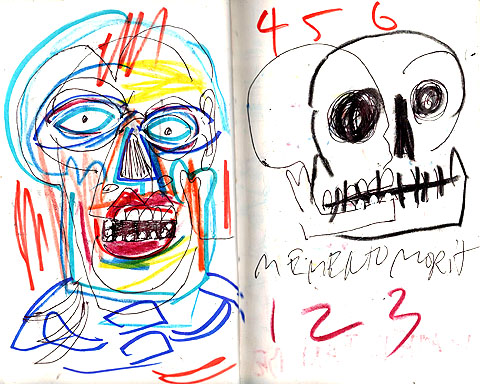 4 5 6
MEMENTO MORI
1 2 3